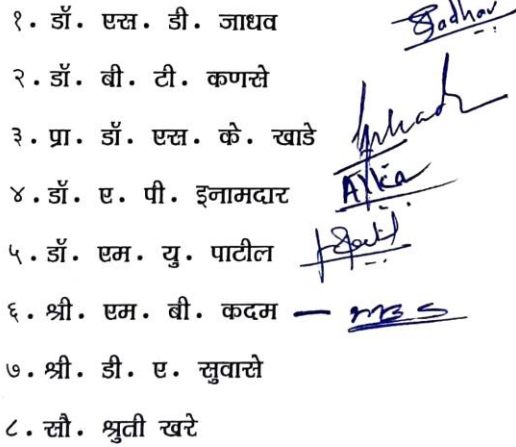 १. डॉ. एस. डी. जाधव Jadhav
२. डॉ. बी. टी. कणसे
३. प्रा. डॉ. एस. के. खाडे
४. डॉ. ए. पी. इनामदार Alka
५. डॉ. एम. यु. पाटील
६. श्री. एम. बी. कदम —
७. श्री. डी. ए. सुवासे
८. सौ. श्रुती खरे